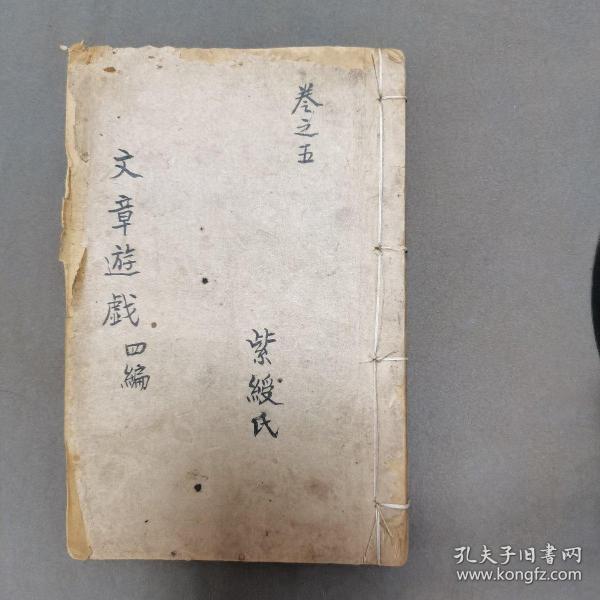 卷之五
紫綬氏
文章遊戯四編
孔夫子旧書网
www.kongfz.com